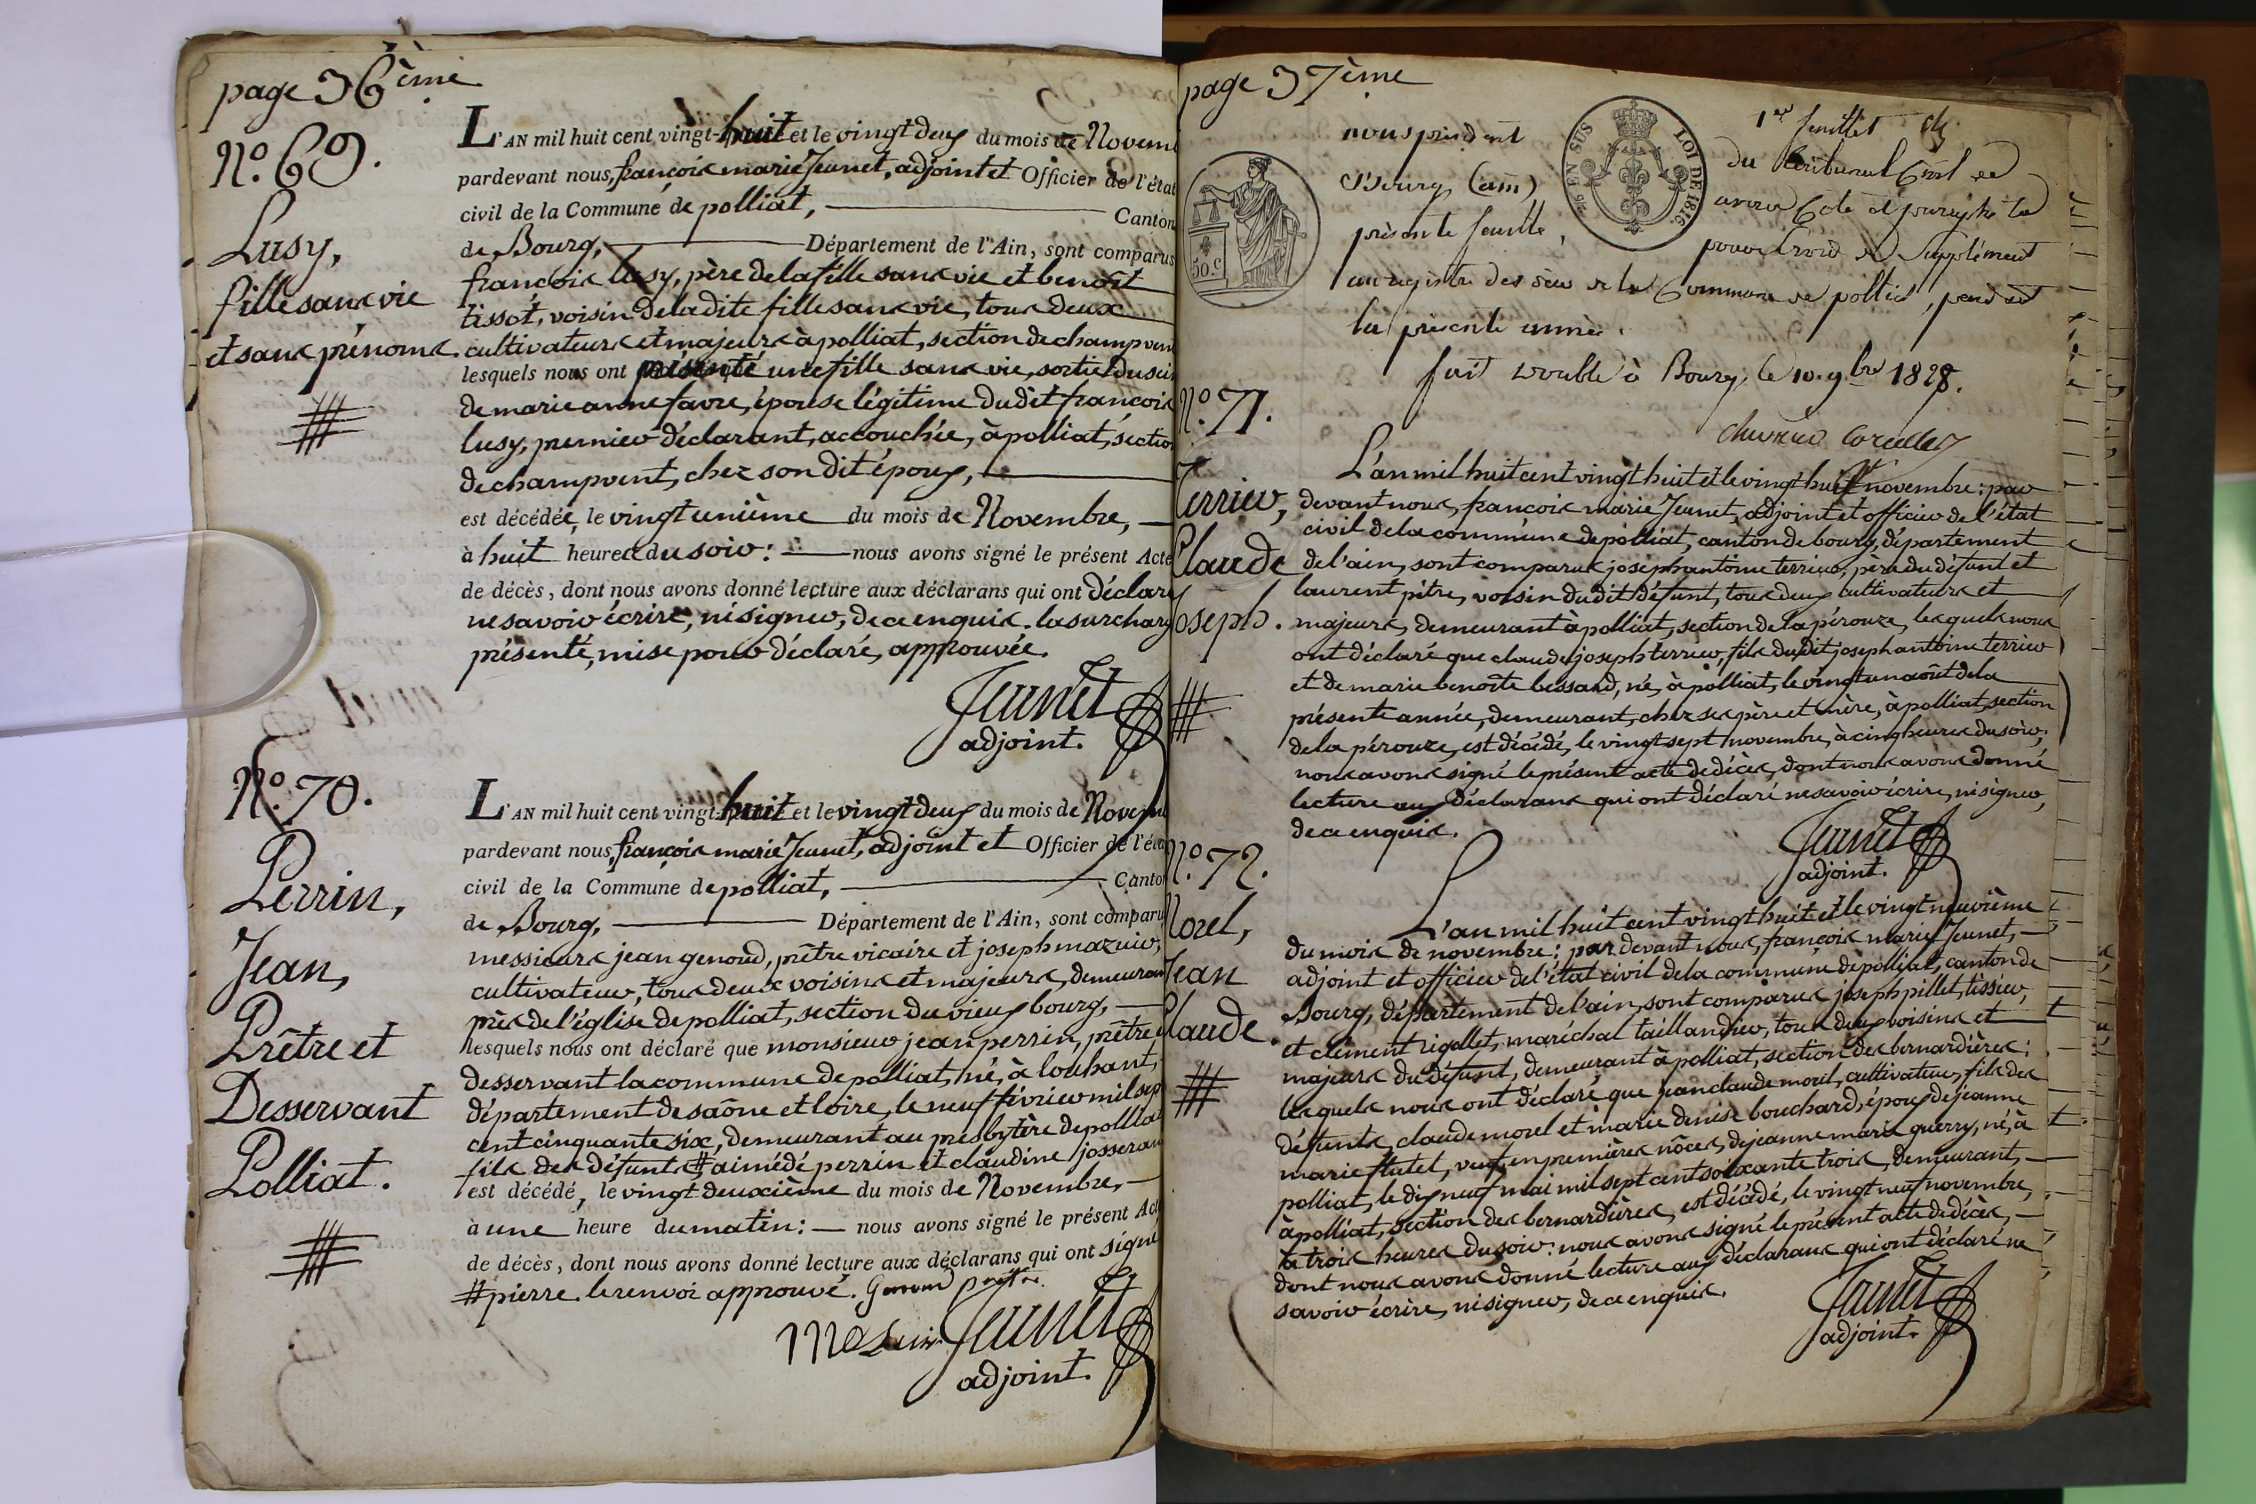 page 36ème
N.º 69.
Lusy,
fille sans vie
et sans prénoms.
L'AN mil huit cent vingt-huit et le vingt deux du mois de Novem
pardevant nous, françois marie Jeunet, adjoint et Officier de l'état
civil de la Commune de polliat, Canton
de Bourg, Département de l'Ain, sont comparus
françois lusy, père de la fille sans vie et benoît
tissot, voisin de la dite fille sans vie, tous deux
cultivateurs et majeurs à polliat, section de champvent
lesquels nous ont présenté une fille sans vie, sortie du sein
de marie anne favre, épouse légitime du dit françois
lusy, premier déclarant, accouchée, à polliat, section
de champvent, chez son dit époux,
est décédée, le vingt unième du mois de Novembre,
à huit heures du soir: nous avons signé le présent Acte
de décès, dont nous avons donné lecture aux déclarans qui ont déclaré
ne savoir écrire, ni signer, de ce enquis. la surcharg
présenté, mise pour déclaré, approuvée.
Jeunet
adjoint.
N.º 70.
Perrin,
Jean,
Prêtre et
Desservant
Polliat.
L'AN mil huit cent vingt-huit et le vingt deux du mois de Novem
pardevant nous, françois marie Jeunet, adjoint et Officier de l'éta
civil de la Commune de polliat, Canton
de Bourg, Département de l'Ain, sont comparu
messieurs jean genoud, prêtre vicaire et joseph mazuir,
cultivateur, tous deux voisins et majeurs, demeurant
près de l'église de polliat, section du vieux bourg,
lesquels nous ont déclaré que monsieur jean perrin, prêtre,
desservant la commune de polliat, né, à louhant,
département de saône et loire, le neuf février mil sept
cent cinquante six, demeurant au presbytère de polliat
fils des défunts # aimédé perrin et claudine josseran
est décédé, le vingt deuxième du mois de Novembre,
à une heure du matin: nous avons signé le présent Acte
de décès, dont nous avons donné lecture aux déclarans qui ont signé
# pierre. le renvoi approuvé. Genoud prêtre.
Mazuir Jeunet
adjoint.
page 37ème
nous président
d'Bourg (ain)
présente feuille,
EN SUS
LOI DE 1816.
50.C
1er feuillet
du tribunal Civil de
avons Coté et paraphé la
pour servir de Supplément
au registre des décès de la Commune de polliat, pendant
la présente année.
fait double à Bourg, le 10. 9bre 1828.
N.º 71.
Terrier,
Claude
Joseph.
L'an mil huit cent vingt huit et le vingt huit novembre: par
devant nous, françois marie Jeunet, adjoint et officier de l'état
civil de la commune de polliat, canton de bourg, département
de l'ain, sont comparus joseph antoine terrier, père du défunt et
laurent pitre, voisin du dit défunt, tous deux cultivateurs et
majeurs, demeurant à polliat, section de la pérouze, lesquels nous
ont déclaré que claude joseph terrier, fils du dit joseph antoine terrier
et de marie benoîte bessard, né, à polliat, le vingt un août de la
présente année, demeurant, chez ses père et mère, à polliat, section
de la pérouze, est décédé, le vingt sept novembre, à cinq heures du soir;
nous avons signé le présent acte de décès, dont nous avons donné
lecture aux déclarans qui ont déclaré ne savoir écrire, ni signer,
de ce enquis.
Jeunet
adjoint.
N.º 72.
Morel,
Jean
Claude.
L'an mil huit cent vingt huit et le vingt neuvième
du mois de novembre: par devant nous, françois marie Jeunet,
adjoint et officier de l'état civil de la commune de polliat, canton de
Bourg, département de l'ain, sont comparus joseph pillet, tissier,
et clément rigollet, maréchal taillandier, tous deux voisins et
majeurs du défunt, demeurant à polliat, section des bernardières;
lesquels nous ont déclaré que jean claude morel, cultivateur, fils des
défunts, claude morel et marie denise bouchard, époux de jeanne
marie flutet, veuf, en premières nôces, de jeanne marie guerry, né, à
polliat, le dix neuf mai mil sept cent soixante trois, demeurant,
à polliat, section des bernardières, est décédé, le vingt neuf novembre,
à trois heures du soir: nous avons signé le présent acte de décès,
dont nous avons donné lecture aux déclarans qui ont déclaré ne
savoir écrire, ni signer, de ce enquis.
Jeunet
adjoint.